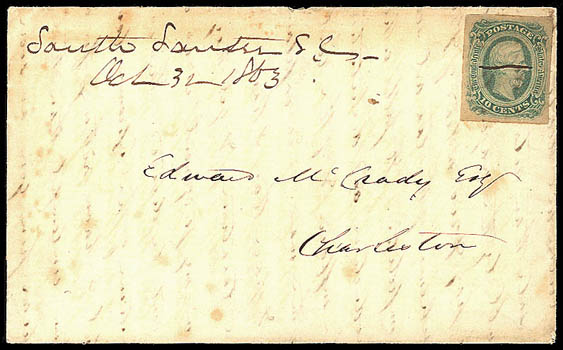 South Santee S.C.
Oct 31 1863
POSTAGE
10 CENTS
Edward McCrady Esq
Charleston